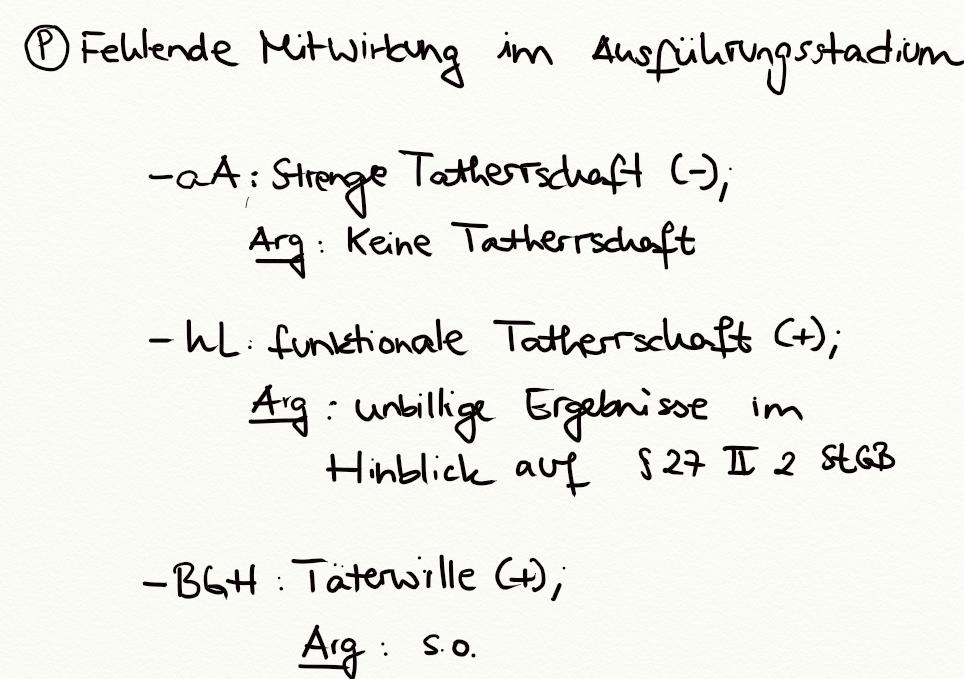 Ⓟ Fehlende Mitwirkung im Ausführungsstadium
- aA: Strenge Tatherrschaft (-);
Arg: Keine Tatherrschaft
- hL: funktionale Tatherrschaft (+);
Arg: unbillige Ergebnisse im
Hinblick auf § 27 II 2 StGB
- BGH: Täterwille (+);
Arg: s.o.